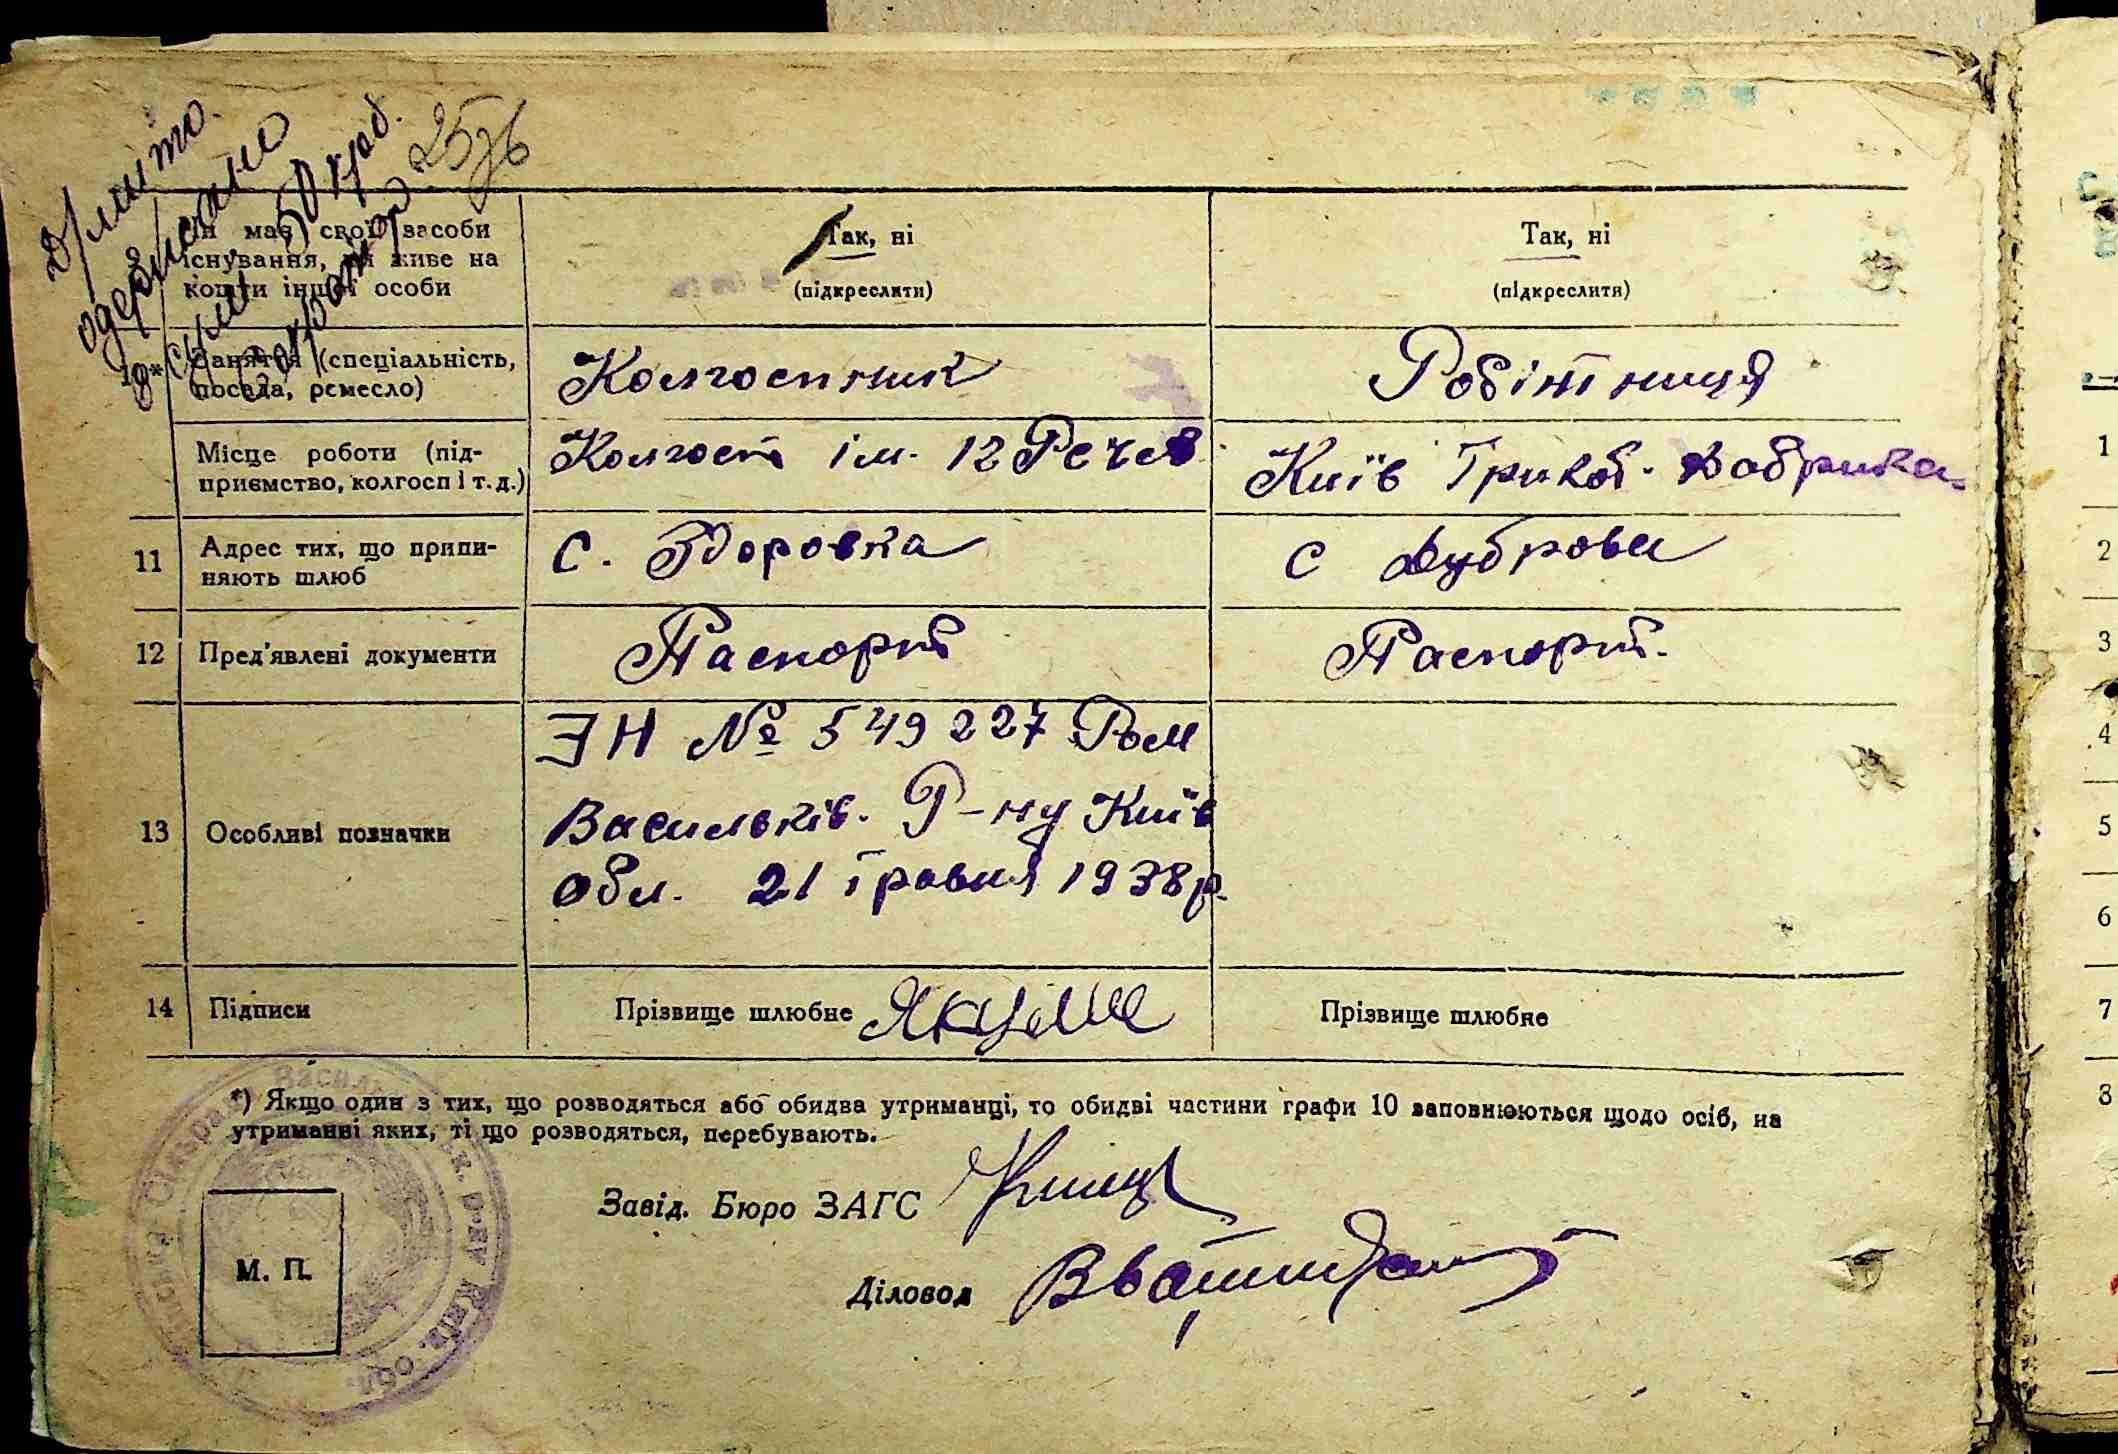 25
Чи має свої засоби
існування, чи живе на
кошти іншої особи
Так, ні
(підкреслити)
Так, ні
(підкреслити)
10*
Заняття (спеціальність,
посада, ремесло)
Колгоспник
Робітниця
Місце роботи (під-
приємство, колгосп і т. д.)
Колгосп ім. 12 Річчя
Київ Трикот. Фабрика
11
Адрес тих, що припи-
няють шлюб
С. Здоровка
С Дуброва
12
Пред'явлені документи
Паспорт
Паспорт.
13
Особливі позначки
ЭН № 549227 Рвм
Васильків. Р-ну Київ
обл. 21 травня 1938р.
14
Підписи
Прізвище шлюбне
Прізвище шлюбне
*) Якщо один з тих, що розводяться або обидва утриманці, то обидві частини графи 10 заповнюються щодо осіб, на
утриманні яких, ті що розводяться, перебувають.
Завід. Бюро ЗАГС
Діловод
М. П.
1
2
3
4
5
6
7
8